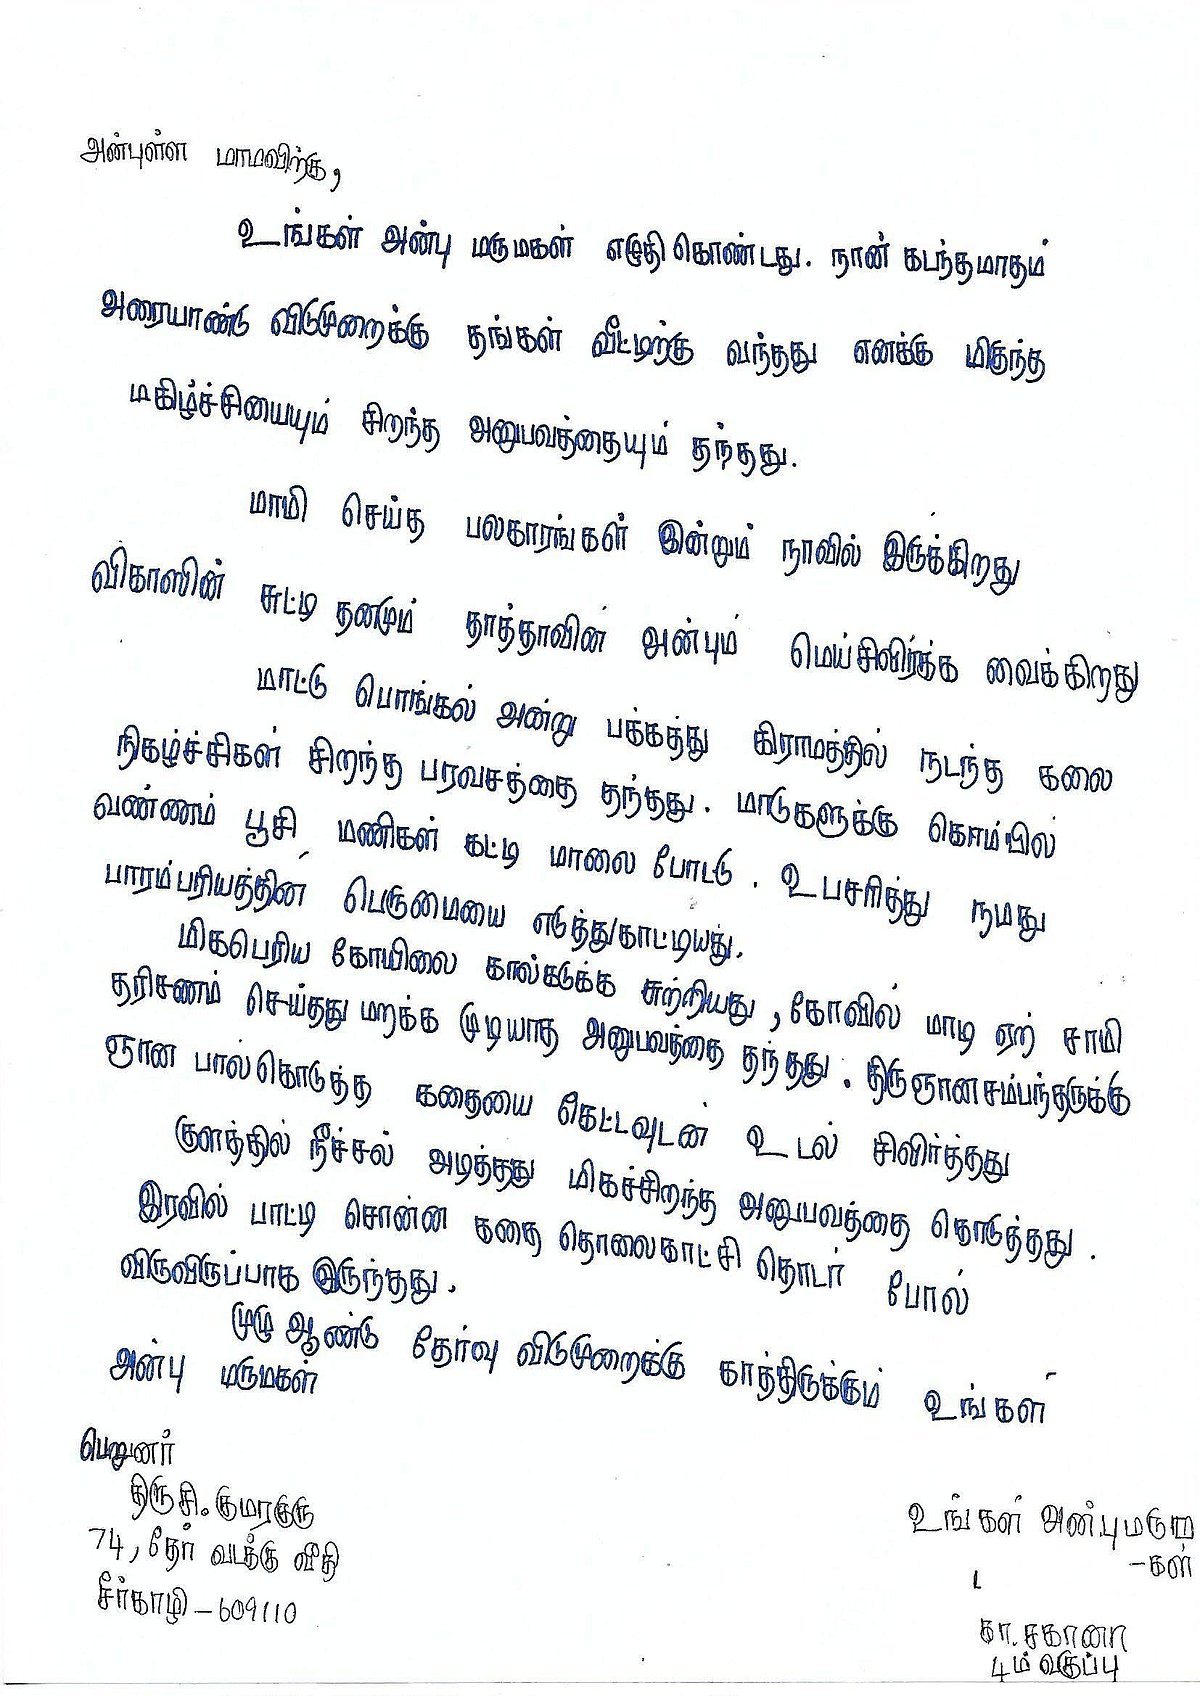 அன்புள்ள மாமவிற்கு,
உங்கள் அன்பு மருமகள் எழுதி கொண்டது. நான் கடந்தமாதம்
அரையாண்டு விடுமுறைக்கு தங்கள் வீட்டிற்கு வந்தது எனக்கு மிகுந்த
மகிழ்ச்சியையும் சிறந்த அனுபவத்தையும் தந்தது.
மாமி செய்த பலகாரங்கள் இன்றும் நாவில் இருக்கிறது
விகாஸின் சுட்டி தனமும் தாத்தாவின் அன்பும் மெய்சிலிர்க்க வைக்கிறது
மாட்டு பொங்கல் அன்று பக்கத்து கிராமத்தில் நடந்த கலை
நிகழ்ச்சிகள் சிறந்த பரவசத்தை தந்தது. மாடுகளுக்கு கொம்பில்
வண்ணம் பூசி மணிகள் கட்டி மாலை போட்டு. உபசரித்து நமது
பாரம்பரியத்தின் பெருமையை எடுத்துகாட்டியது.
மிகபெரிய கோயிலை கால்கடுக்க சுற்றியது, கோவில் மாடி ஏறி சாமி
தரிசணம் செய்தது மறக்க முடியாத அனுபவத்தை தந்தது. திருஞானசம்பந்தருக்கு
ஞான பால்கொடுத்த கதையை கேட்டவுடன் உடல் சிலிர்த்தது
குளத்தில் நீச்சல் அடித்தது மிகச்சிறந்த அனுபவத்தை கொடுத்தது.
இரவில் பாட்டி சொன்ன கதை தொலைகாட்சி தொடர் போல்
விருவிருப்பாக இருந்தது.
முழு ஆண்டு தேர்வு விடுமுறைக்கு காத்திருக்கும் உங்கள்
அன்பு மருமகள்
பெறுனர்
திரு சி. குமரகுரு
74, தேர் வடக்கு வீதி
சீர்காழி - 609110
உங்கள் அன்புமரும
-கள்
கா. சகானா
4ம் வகுப்பு